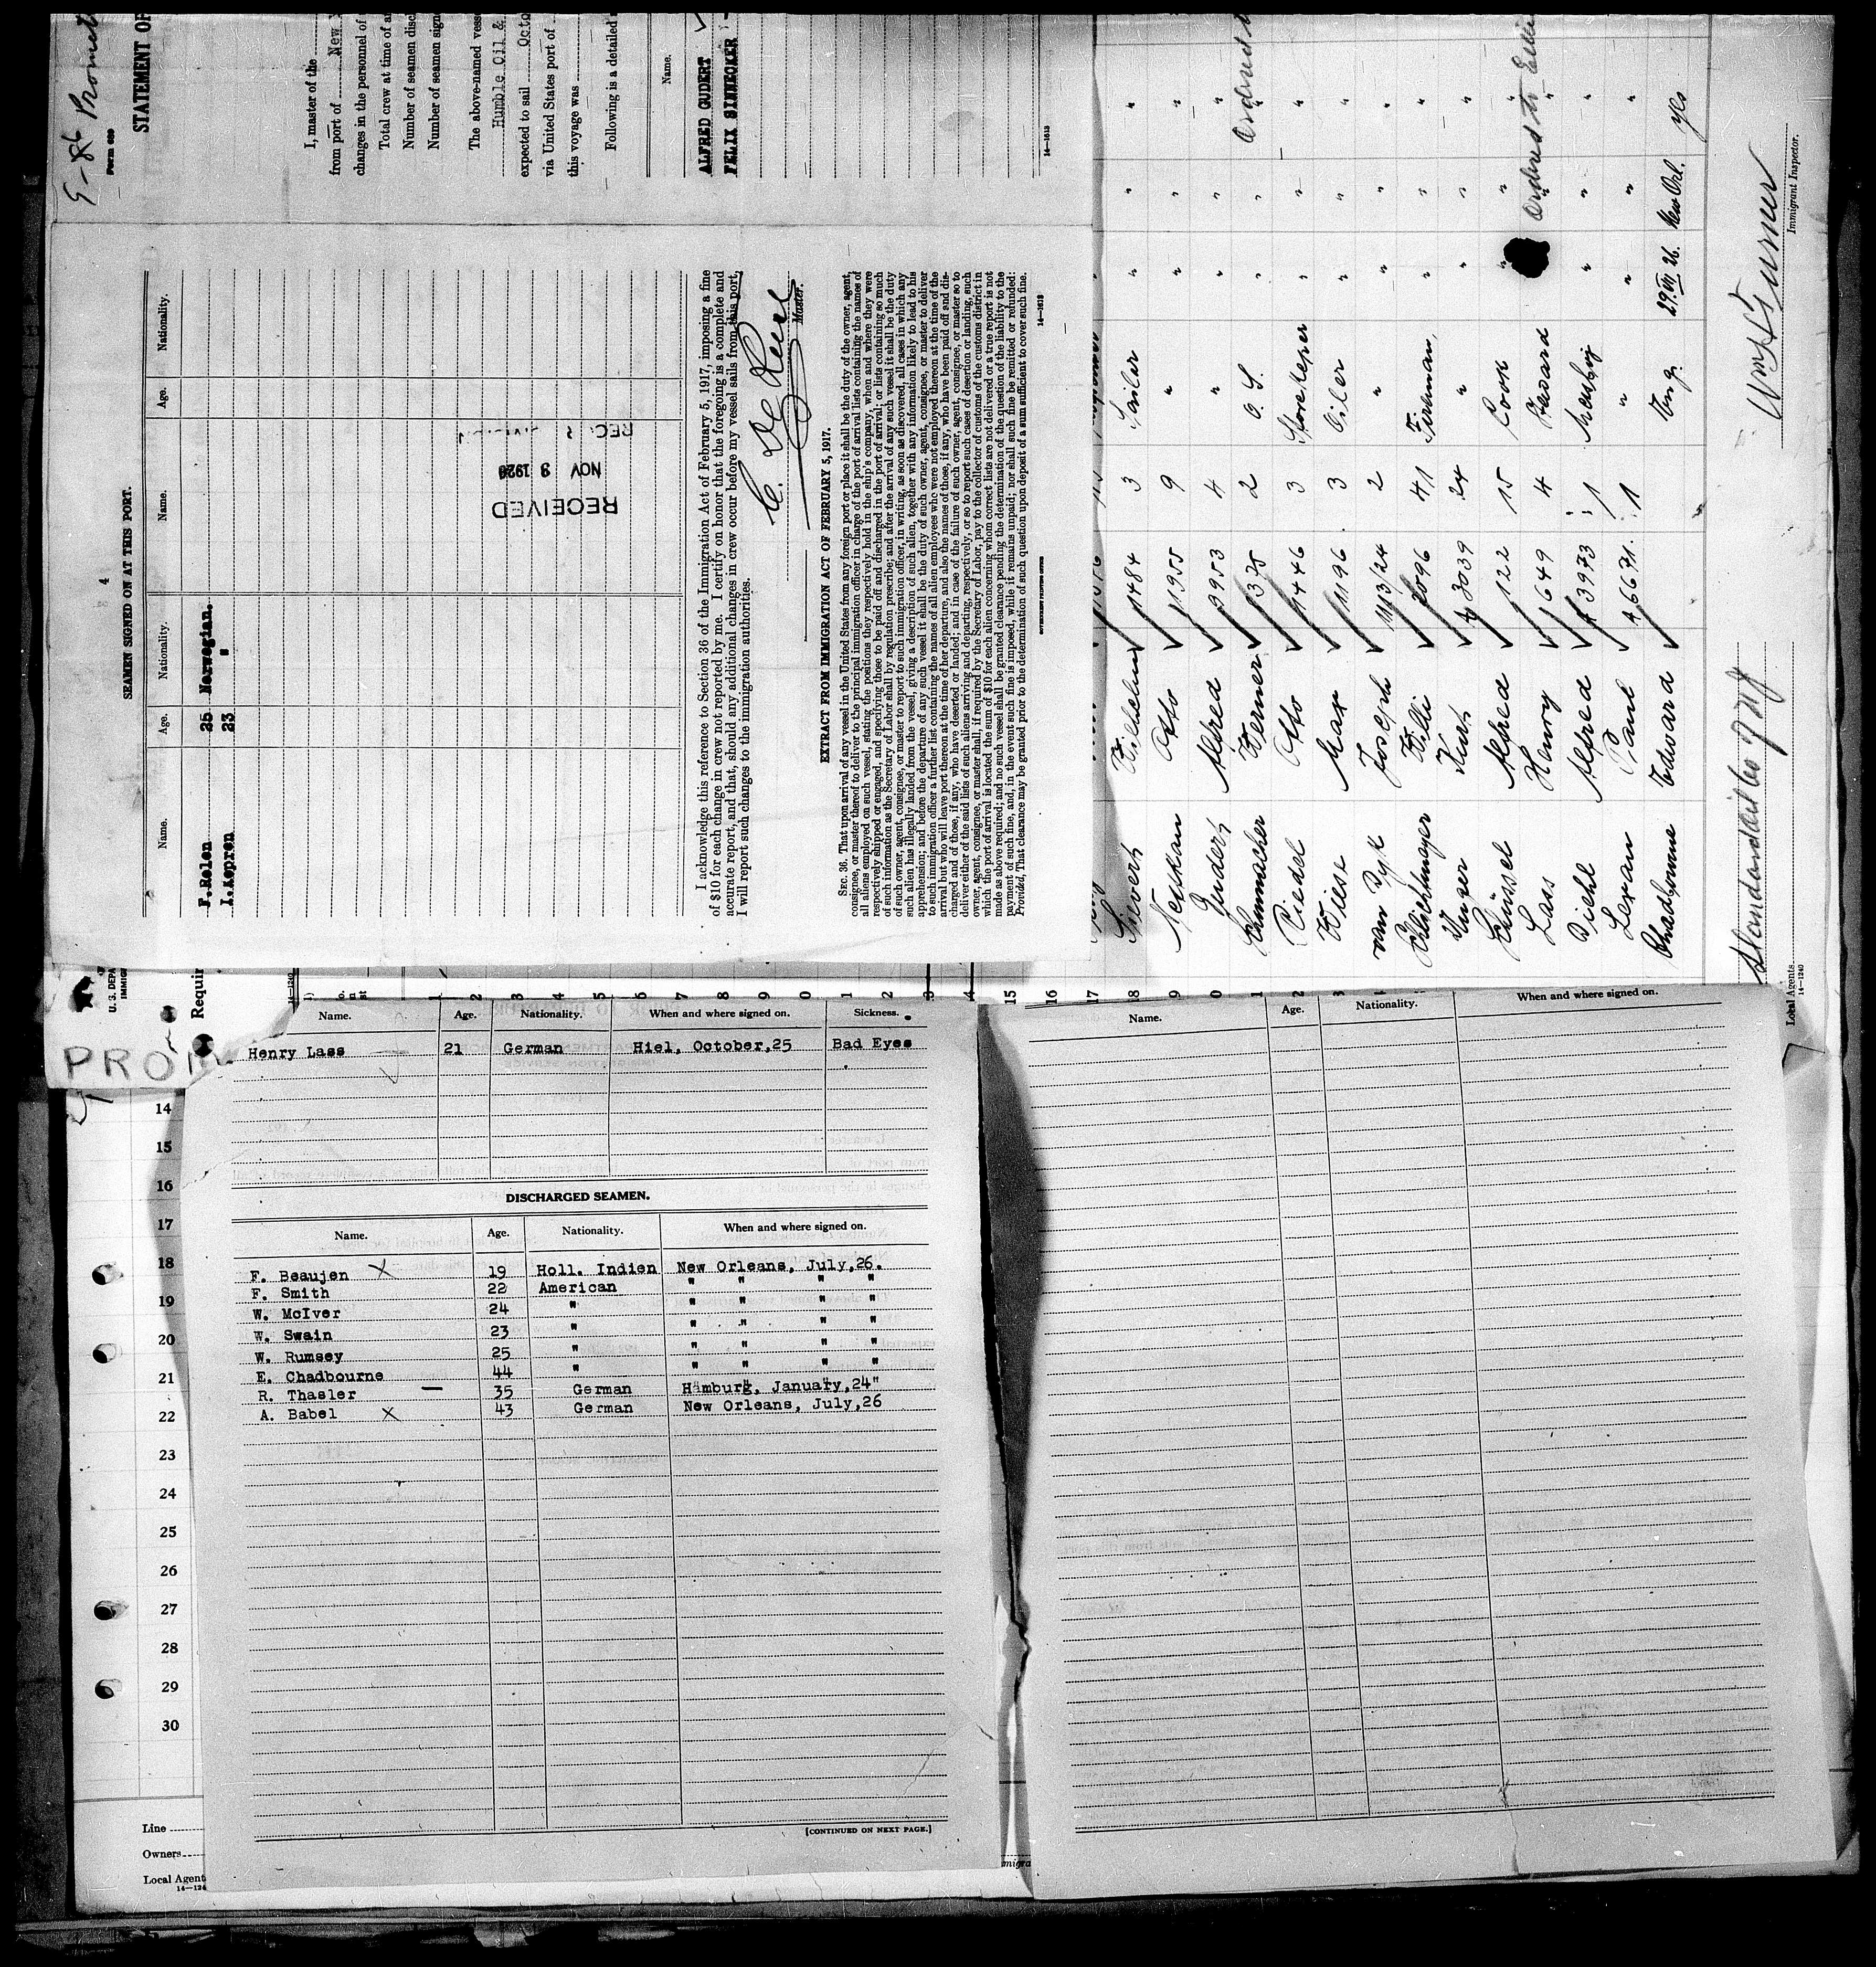 G-86 Promet
Form 689
STATEMENT OF
I, master of the
from port of New
changes in the personnel of
Total crew at time of a
Number of seamen disc
Number of seamen sign
The above-named vess
Humble Oil &
expected to sail Octo
via United States port of
this voyage was
Following is a detailed
Name.
ALFRED GUDERT
FELIX SINNECKER
14-1613
4
SEAMEN SIGNED ON AT THIS PORT.
Name. Age. Nationality. Name. Age. Nationality.
F.Relen 25 Norwegian.
I.Lepren 23 "
RECEIVED
NOV 8 1926
I acknowledge this reference to Section 36 of the Immigration Act of February 5, 1917, imposing a fine
of $10 for each change in crew not reported by me. I certify on honor that the foregoing is a complete and
accurate report, and that, should any additional changes in crew occur before my vessel sails from this port,
I will report such changes to the immigration authorities.
Master.
EXTRACT FROM IMMIGRATION ACT OF FEBRUARY 5, 1917.
SEC. 36. That upon arrival of any vessel in the United States from any foreign port or place it shall be the duty of the owner, agent,
consignee, or master thereof to deliver to the principal immigration officer in charge of the port of arrival lists containing the names of
all aliens employed on such vessel, stating the positions they respectively hold in the ship's company, when and where they were
respectively shipped or engaged, and specifying those to be paid off and discharged in the port of arrival; or lists containing so much
of such information as the Secretary of Labor shall by regulation prescribe; and after the arrival of any such vessel it shall be the duty
of such owner, agent, consignee, or master to report to such immigration officer, in writing, as soon as discovered, all cases in which any
such alien has illegally landed from the vessel, giving a description of such alien, together with any information likely to lead to his
apprehension; and before the departure of any such vessel it shall be the duty of such owner, agent, consignee, or master to deliver
to such immigration officer a further list containing the names of all alien employees who were not employed thereon at the time of the
arrival but who will leave port thereon at the time of her departure, and also the names of those, if any, who have been paid off and dis-
charged and of those, if any, who have deserted or landed; and in case of the failure of such owner, agent, consignee, or master so to
deliver either of the said lists of such aliens arriving and departing, respectively, or so to report such cases of desertion or landing, such
owner, agent, consignee, or master shall, if required by the Secretary of Labor, pay to the collector of customs of the customs district in
which the port of arrival is located the sum of $10 for each alien concerning whom correct lists are not delivered or a true report is not
made as above required; and no such vessel shall be granted clearance pending the determination of the question of the liability to the
payment of such fine, and, in the event such fine is imposed, while it remains unpaid; nor shall such fine be remitted or refunded:
Provided, That clearance may be granted prior to the determination of such question upon deposit of a sum sufficient to cover such fine.
14-1613
GOVERNMENT PRINTING OFFICE
Sievert Wilhelm 1484 3 Sailor " " "
Otto 11955 9 " " " "
Gudert Alfred 9953 4 " " " "
Werner 1375 2 O. S. " " "
Riedel Otto 1446 3 Storekeeper " " "
Wiese Max 1196 3 Oiler " " "
van Dyk Joseph 1113/24 2 " " " "
Willi 2096 41 Fireman, " " "
Unger Kurt 3039 24 " " " "
Alfred 122 15 Cook " " "
Lass Henry 1649 4 " " "
Diehl Alfred 3973 1 Messboy " " "
Lexan Paul 46671 1 " " " "
Chadbourne Edward Eng. 29.VII 26. New Orl. yes
Ordered to
Standard Oil Co of N J
Wm H Turner
Immigrant Inspector.
Local Agents
14-1240
U. S. DEPA
IMMIG
Requir
14-1240
1 2 3 4 5 6 7 8 9 0 1 2 3 4 15 16 17 18 19 0 1 2
PROM
Name. Age. Nationality. When and where signed on. Sickness.
Henry Lass 21 German Hiel, October,25 Bad Eyes
DISCHARGED SEAMEN.
Name. Age. Nationality. When and where signed on.
F. Beaujen X 19 Holl. Indien New Orleans, July,26.
F. Smith 22 American " " " "
W. McIver 24 " " " " "
W. Swain 23 " " " " "
W. Rumsey 25 " " " " "
E. Chadbourne 44 " " " " "
R. Thasler — 35 German Hamburg, January,24"
A. Babel X 43 German New Orleans, July,26
[CONTINUED ON NEXT PAGE.]
Name. Age. Nationality. When and where signed on.
14
15
16
17
18
19
20
21
22
23
24
25
26
27
28
29
30
Line
Owners
Local Agent
14-124
migra